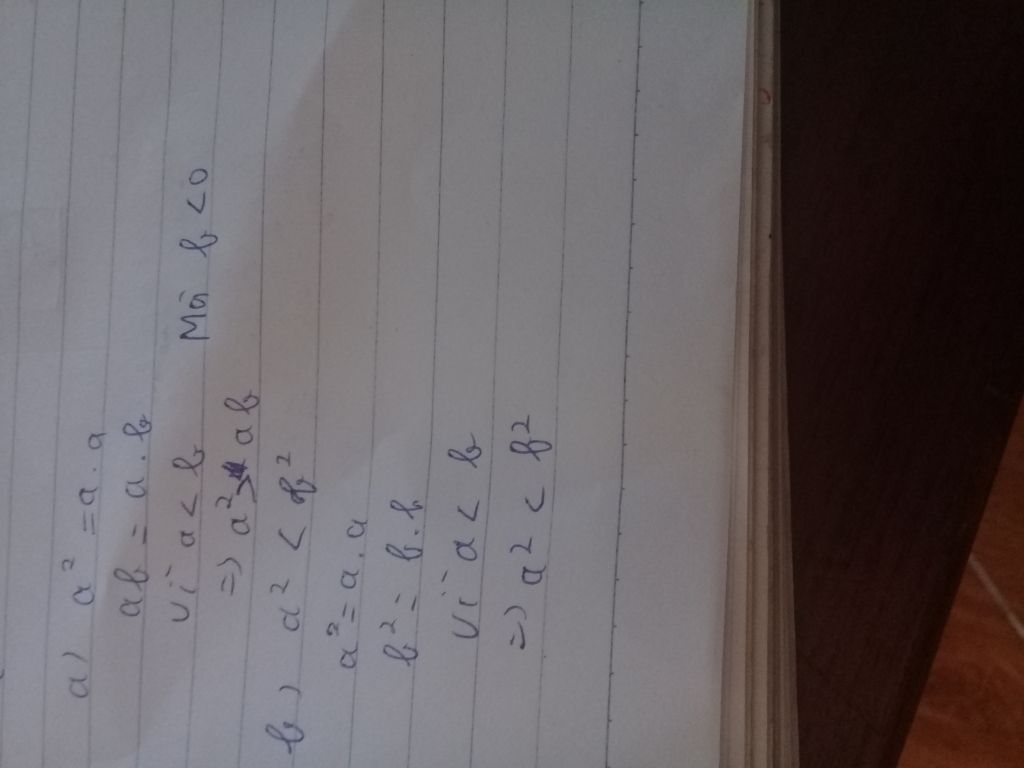 a) a² = a.a
ab = a.b
Vì a < b Mà b < 0
=> a² > ab
b) a² < b²
a² = a.a
b² = b.b
Vì a < b
=> a² < b²